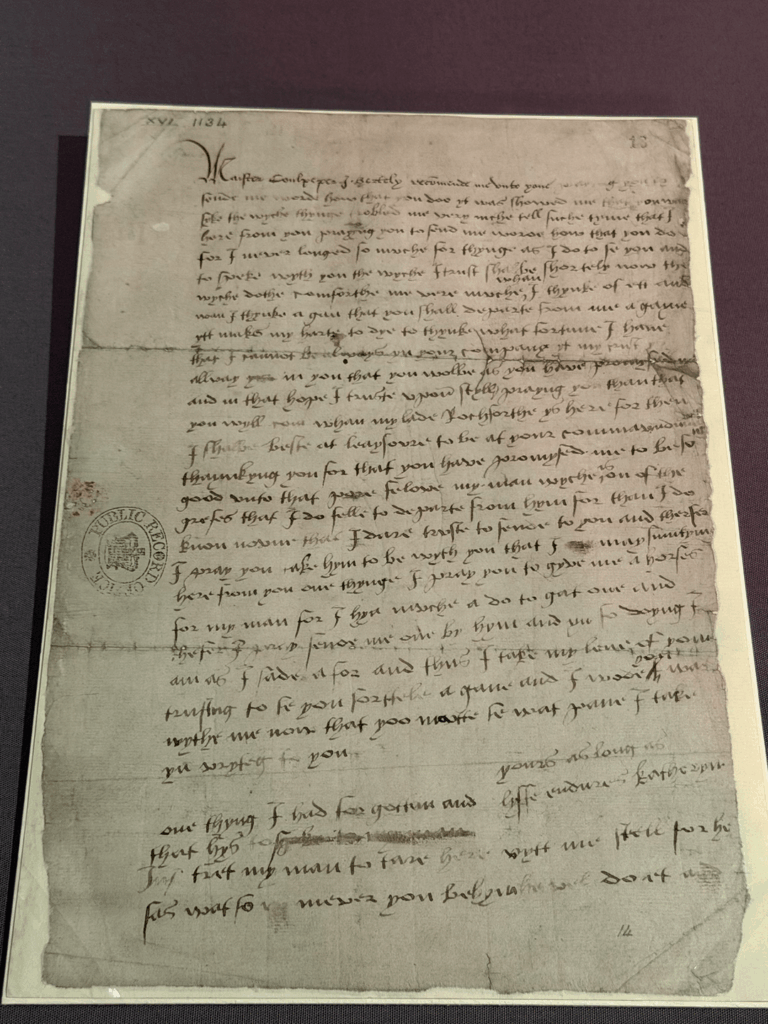 XVI 1134
13
Maister Coulpeper I hertely recomende me vnto youe praying you to
sende me worde how that you doo yt was showed me that you was
seke the wyche thynge trobled me very muche tell suche tyme that I
here from you praying you to send me worde how that you do
for I never longed so muche for thynge as I do to se you and
to speke wyth you the wyche I trust shalbe shortely now the
wyche dothe comforthe me very muche whan I thynke of ett and
wan I thynke a gan that you shall departe from me a gane
ytt makes my harte to dye to thynke what fortune I have
that I cannot be always yn your company yt my trust ys
allway in you that you wolbe as you have promysed me
and in that hope I truste vpon styll praying you than that
you wyll com whan my lade Rochforthe ys here for then
I shalbe beste at leaysoure to be at your commaundment
thaunkyng you for that you have promysed me to be so
good vnto that pore felowe my man wyche on of the
grefes that I do felle to departe from hym for than I do
know noone that I dare truste to sende to you and therfor
I pray you take hym to be wyth you that I may sumtym
here from you one thynge I pray you to gyve me a horse
for my man for I hyd muche a do to gat one and
therfer I pray sende me one by hym and yn so doying I
am as I sade afor and thus I take my leve of you
trusting to se you shorttele a gane and I wode you was
wythe me now that yoo mytte se wat pane I take
yn wryteg to you
yours as long as
lyffe endures katheryn
one thyng I had forgotten and
that hys to
tret my man to tare here wytt me stell for he
sas wat so mever you bed hym he wel do et and
14
PUBLIC RECORD OFFICE